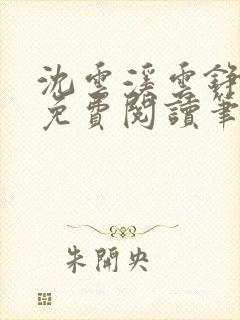 沈雲溪雲錚
免費閱讀筆
朱開央